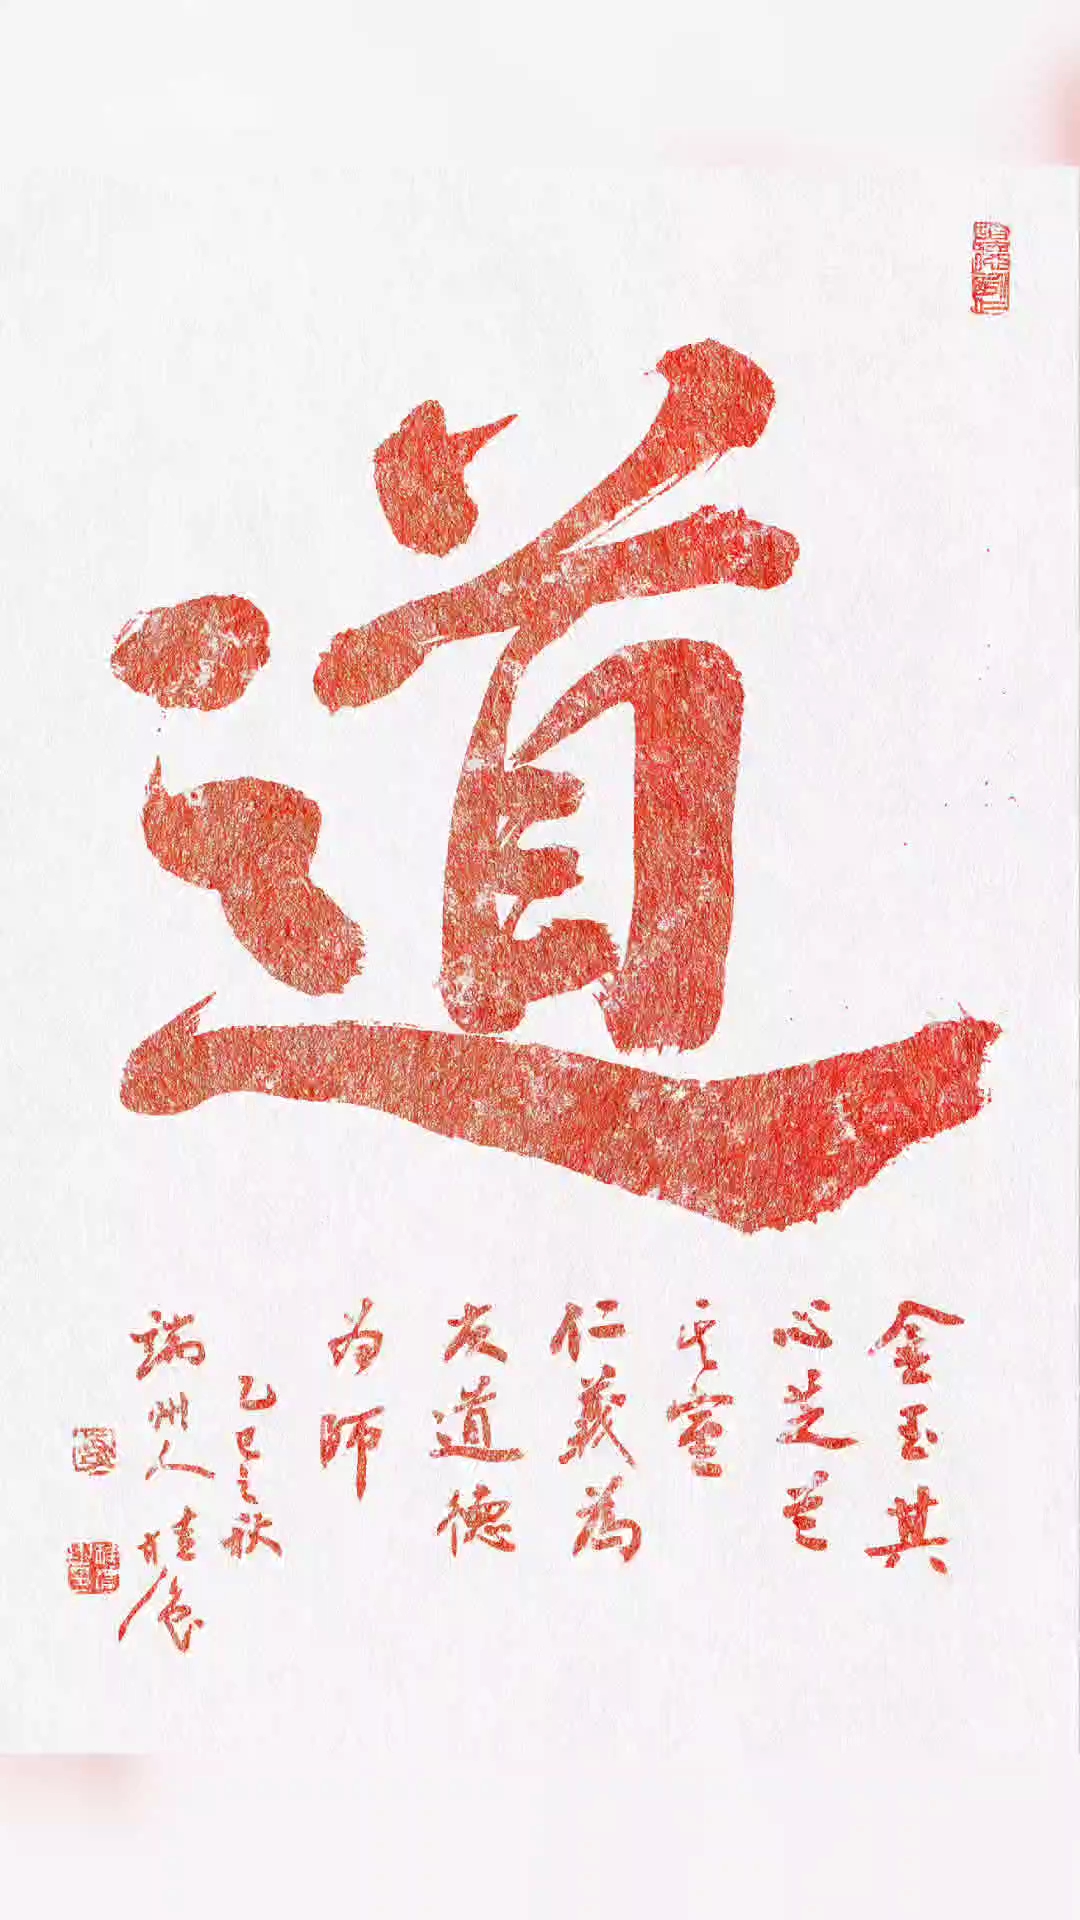 道
金玉其
心芝兰
其室
仁義為
友道德
为师
乙巳之秋
瑞州人